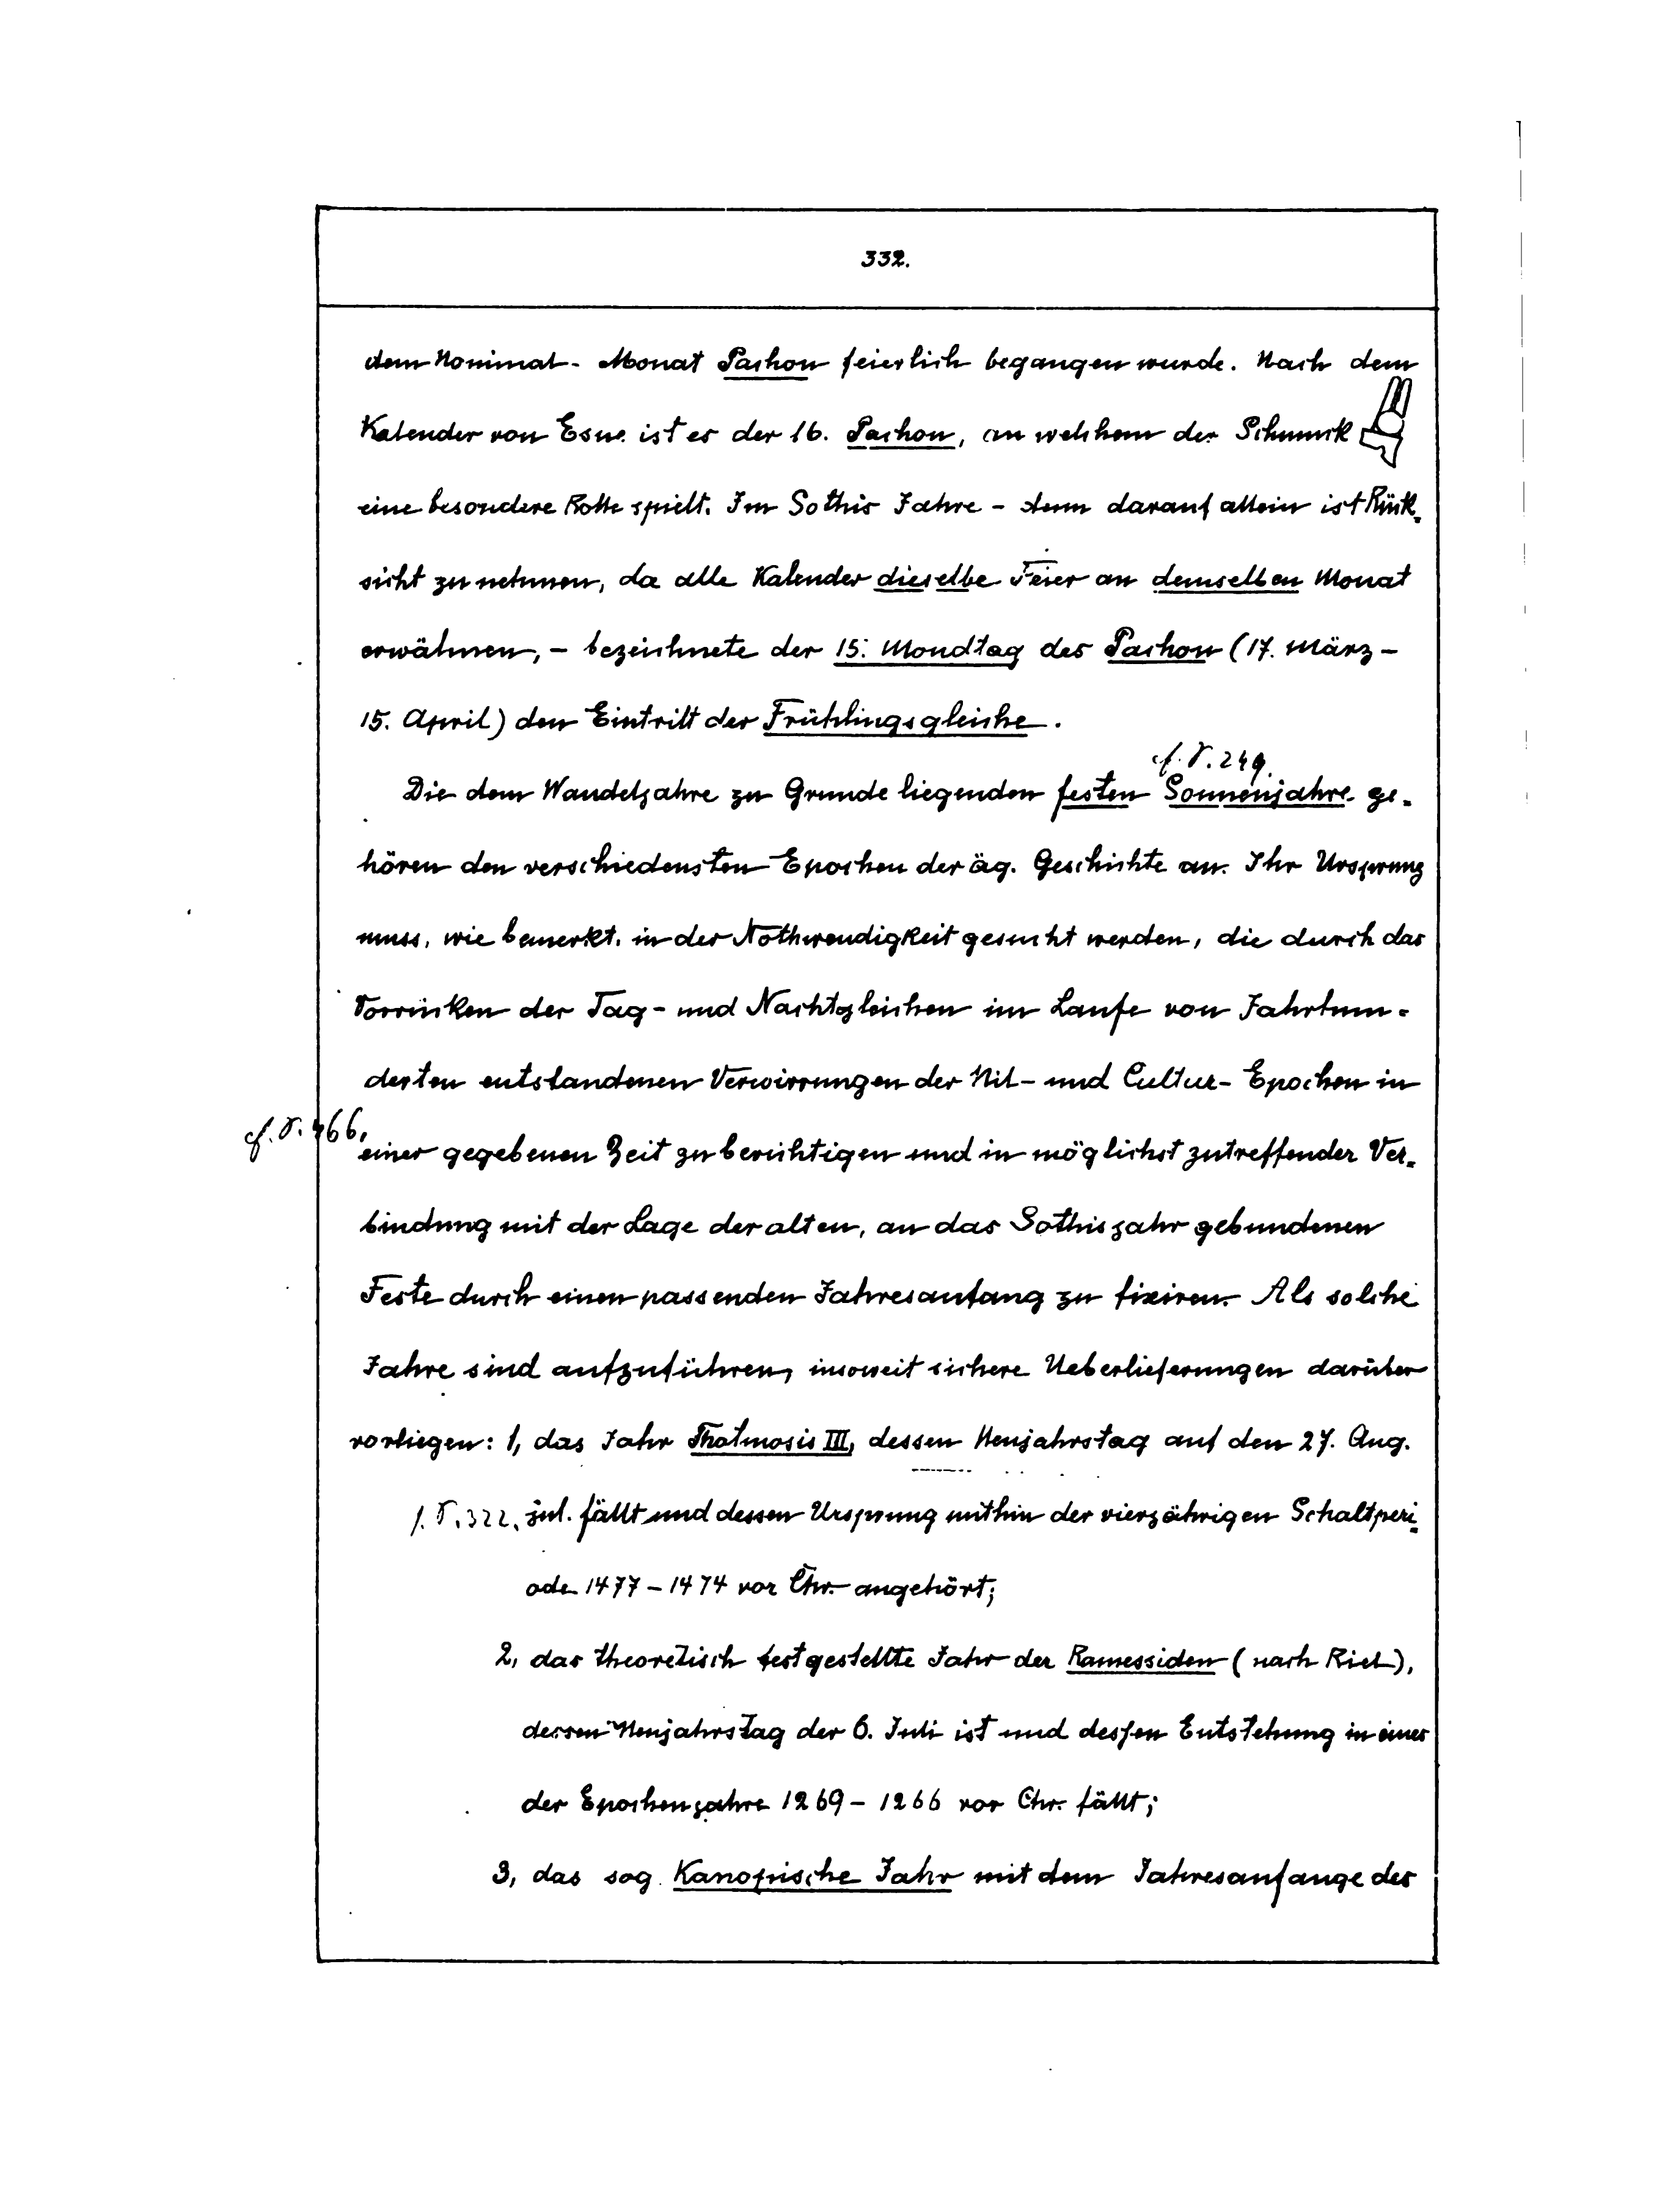 332.
dem Nominal- Monat Pachon feierlich begangen wurde. Nach dem
Kalender von Esne ist es der 16. Pachon, an welchem der Schmuck
eine besondere Rolle spielt. Im Sothis Jahre - denn darauf allein ist Rück-
sicht zu nehmen, da alle Kalender dieselbe Feier an demselben Monat
erwähnen, - bezeichnete der 15. Mondtag des Pachon (17. März -
15. April) den Eintritt der Frühlingsgleiche.
cf. S. 249.
Die dem Wandeljahre zu Grunde liegenden festen Sonnenjahre ge-
hören den verschiedensten Epochen der äg. Geschichte an. Ihr Ursprung
muss, wie bemerkt, in der Nothwendigkeit gesucht werden, die durch das
Vorrücken der Tag- und Nachtgleichen im Laufe von Jahrhun-
derten entstandenen Verwirrungen der Nil- und Cultur- Epochen in
cf. S. 466.
einer gegebenen Zeit zu berichtigen und in möglichst zutreffender Ver-
bindung mit der Lage der alten, an das Sothisjahr gebundenen
Feste durch einen passenden Jahresanfang zu fixiren. Als solche
Jahre sind aufzuführen, insoweit sichere Ueberlieferungen darüber
vorliegen: 1, das Jahr Thotmosis III, dessen Neujahrstag auf den 27. Aug.
f. S. 322. jul. fällt und dessen Ursprung mithin der vierjährigen Schaltperi-
ode 1477-1474 vor Chr. angehört;
2, das theoretisch festgestellte Jahr der Ramessiden (nach Riel),
dessen Neujahrstag der 6. Juli ist und dessen Entstehung in eines
der Epochenjahre 1269-1266 vor Chr. fällt;
3, das sog. Kanopische Jahr mit dem Jahresanfange des